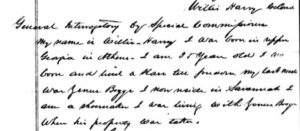 Willis Harry Colored
General Interogatory by Special Commissioner
My name is Willis Harry I was born in upper
Georgia in Athens. I am 15 Year old I was
born and lived a slave till freedom my last owner
was James Boggs I now reside in Savannah I
am a I was living with James Boggs
When his property was taken.